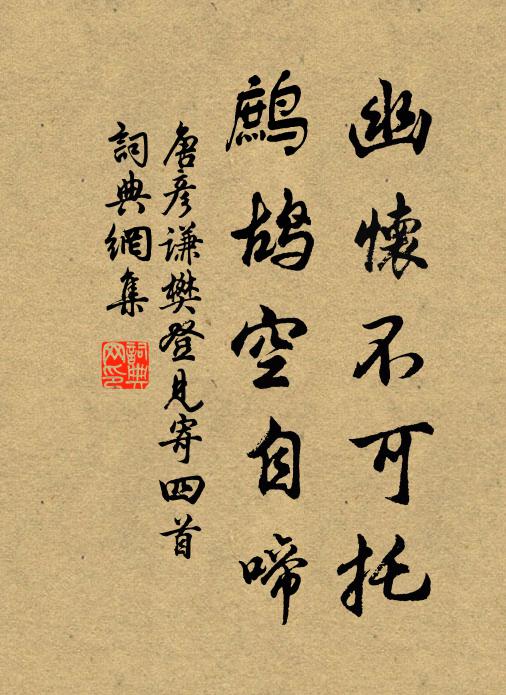 幽懷不可托
鷓鴣空自啼
唐彥謙樊登見寄四首
詞典網集
詞典网印